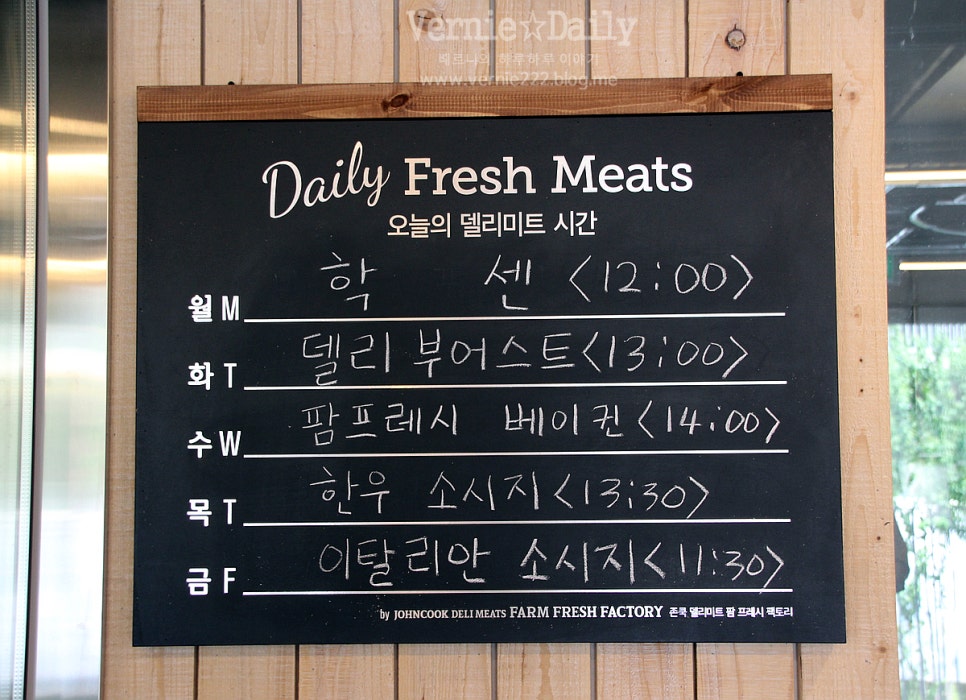 Vernie☆Daily
베르니의 하루하루 이야기
www.vernie222.blog.me
Daily Fresh Meats
오늘의 델리미트 시간
월 M 학 센 <12:00>
화 T 델리 부어스트 <13:00>
수 W 팜프레시 베이컨 <14:00>
목 T 한우 소시지 <13:30>
금 F 이탈리안 소시지 <11:30>
by JOHNCOOK DELI MEATS FARM FRESH FACTORY 존쿡 델리미트 팜 프레시 팩토리